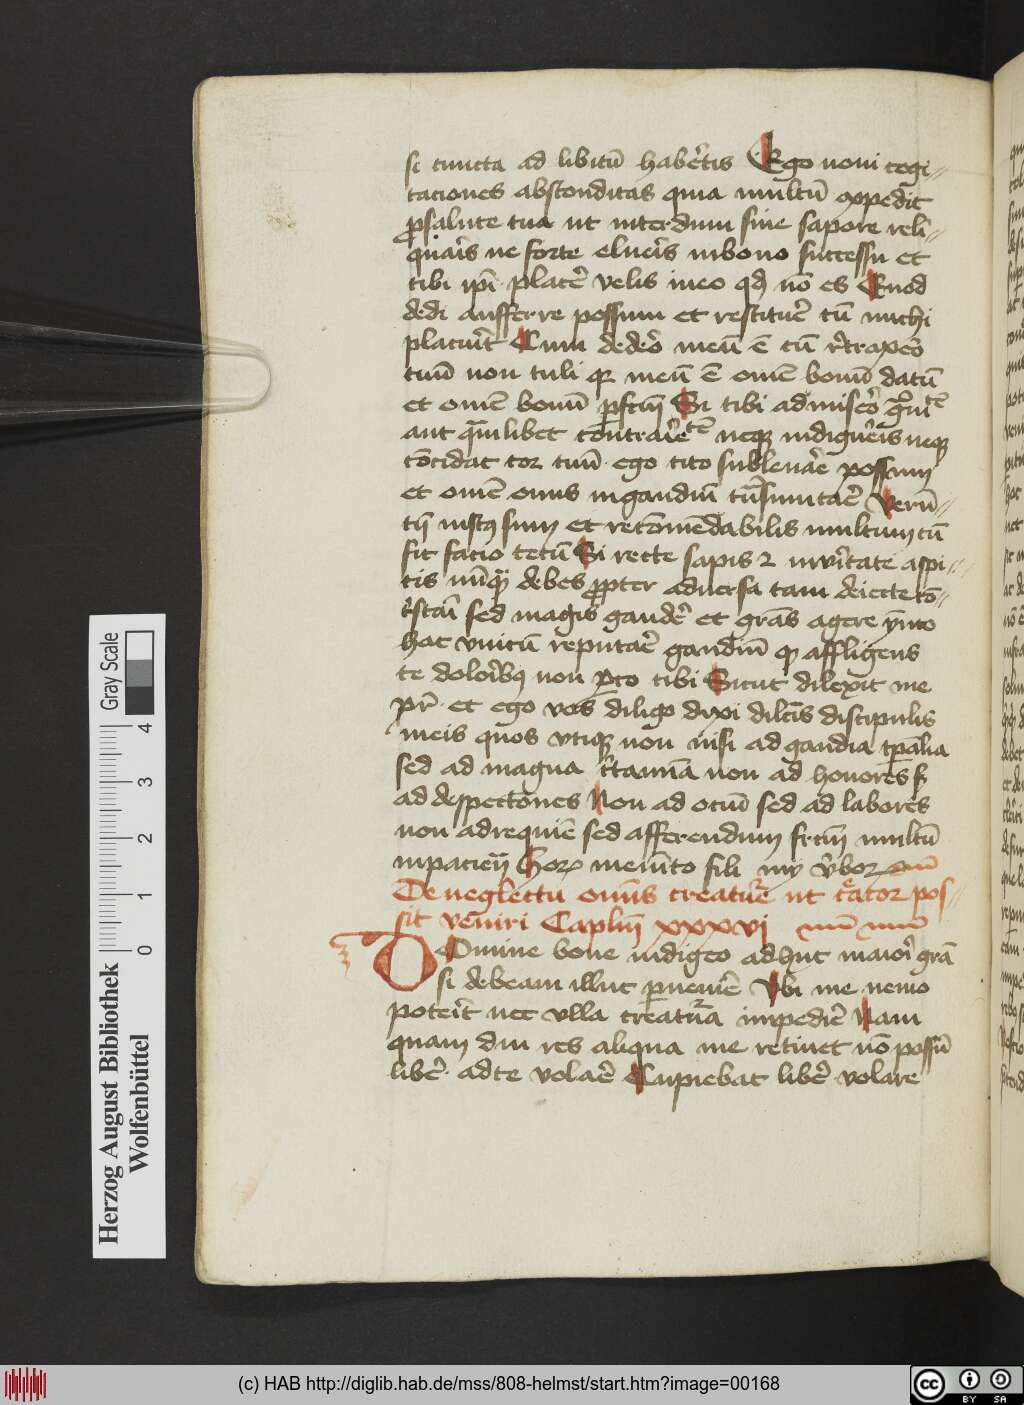 si cuncta ad libitū haberēs Ego noui cogi-
taciones absconditas quia multū expedit
pro salute tua ut interdum sine sapore reli-
quaris ne forte eleueris in bono successu et
tibi ipī placē velis in eo qd nō es Quod
dedi aufferre possum et restituē cū michi
placuīt Cum dedēo meū ē cū rͣtraxēo
tuū non tuli qr meū ē omē bonū datū
et omē bonū pfctū Si tibi admisēo grauitē
aut qͣmlibet contrarietē neqꝫ indigneris neqꝫ
cōcidat cor tuū ego cito subleuāe possum
et omē onus in gaudiū trāsmutāe Verū-
tn iustꝯ sum et recōmēdabilis multum cū
sic facio tecū Si recte sapis ⁊ in vītate aspi-
cis nūqͣ debes propter aduersa tam deiecte cō-
tͥstāi sed magis gaudē et grās agere ymo
hoc vnicū reputāe gaudiū qꝫ affligens
te doloībꝯ non pͨo tibi Sicut dilexit me
pr̄ et ego vos diligo dixi dilcīs discipulis
meis quos vtiqꝫ non misi ad gaudia tpālia
sed ad magna c̄tamīa non ad honores sꝫ
ad despectōnes Non ad ociū sed ad labores
non ad requiē sed afferendum frctū multū
in paciēn Horꝝ memēto fili my v̄borꝝ
De neglectu omīs creatuē ut cͤator pos-
sit veniri Caplm xxxvi
Domine bone indigeo adhuc maioī grā
si debeam illuc puenīe Vbi me nemo
poteīt nec vlla creatuā impedīe Nam
quam diu res aliqua me retinet nō possū
libē ad te volāe Cupiebat libē volare
Herzog August Bibliothek
Wolfenbüttel
0 1 2 3 4
Gray Scale
(c) HAB http://diglib.hab.de/mss/808-helmst/start.htm?image=00168
cc BY SA